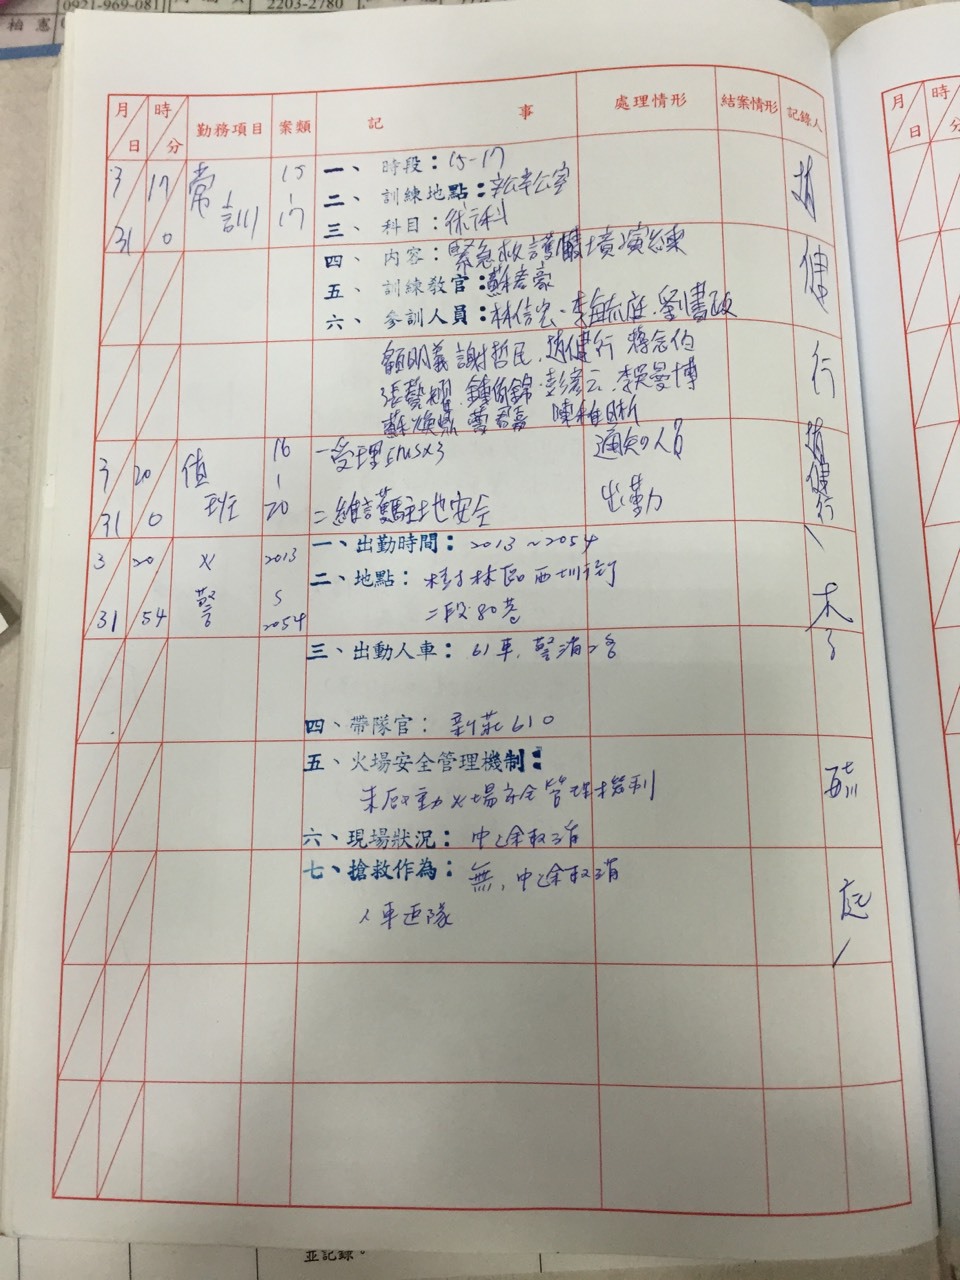 0921-969-081
2203-2780
柏憲
月 日 時 分 勤務項目 案類 記 事 處理情形 結案情形 記錄人
3 31 17 0 常訓 15 | 17
一、時段：15-17
二、訓練地點：辦公室
三、科目：
四、內容：緊急救護 演練
五、訓練教官：蘇 豪
六、參訓人員：林信宏、李 庭、劉書政
顏明義 謝哲民、趙健行 蔣念伯
張 鍾 錦、彭 云、李 博
蘇 陳
趙健行
3 31 20 0 值班 16 | 20
一受理EMSx3 通知人員
二維護駐地安全 出勤
趙健行
3 31 20 54 火警 2013 2054
一、出勤時間：2013～2054
二、地點： 林區西圳街
二段80巷
三、出動人車：61車、
四、帶隊官：新莊610
五、火場安全管理機制：
未啟動火場安全管理機制
六、現場狀況：中途取消
七、搶救作為：無，中途取消
人車返隊
月 日 時 分
並記錄。